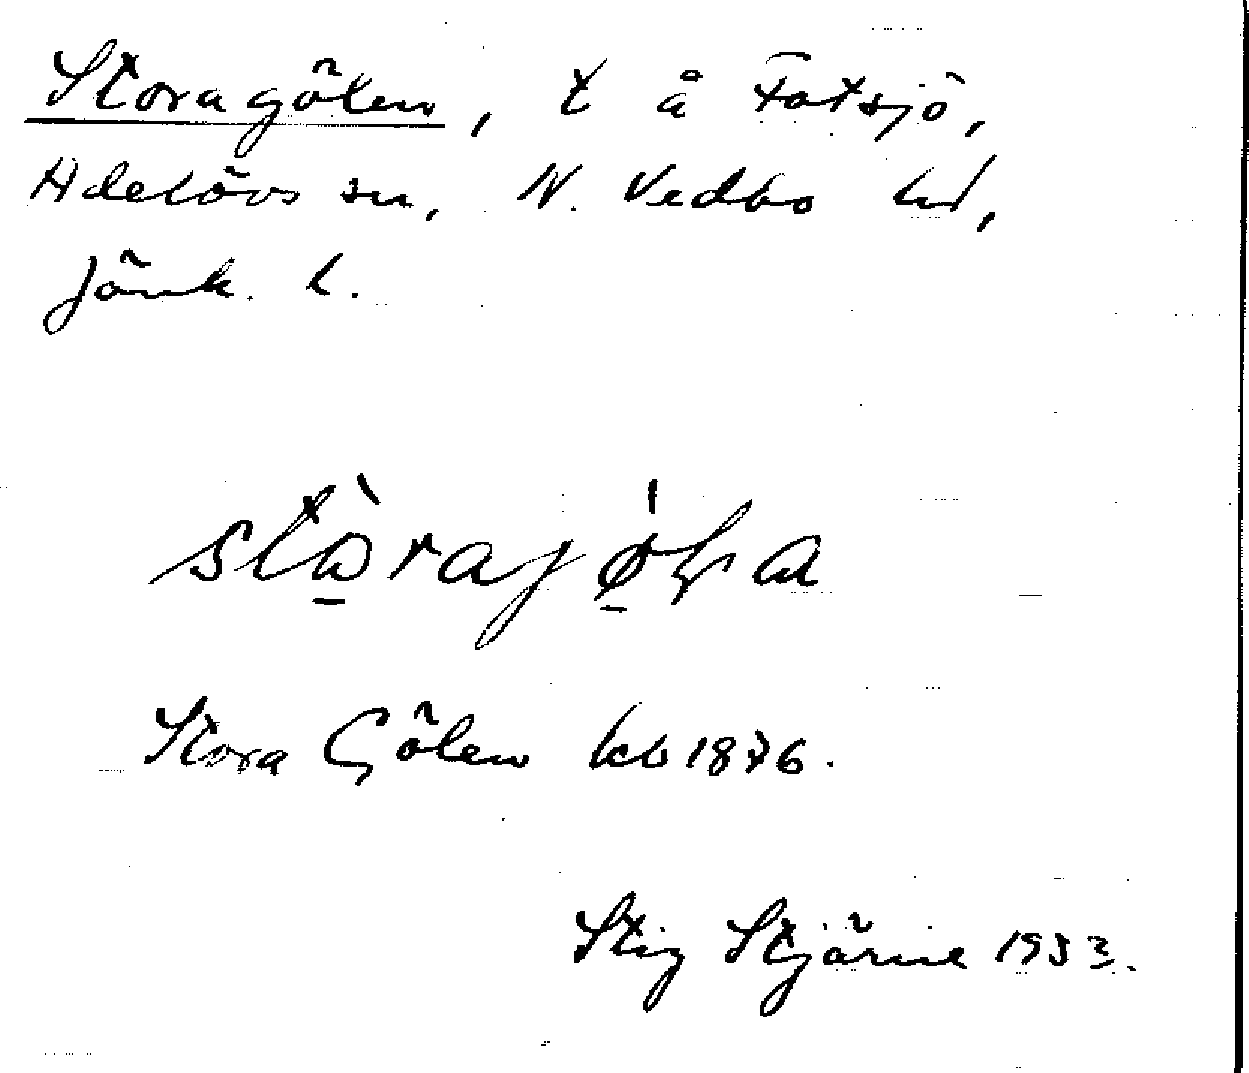 Storagölen, t å Fotsjö,
Adelövs sn, N. Vedbo hd,
Jönk. l.
Stora Gölen kb 1876.
Stig Stjärne 1933.